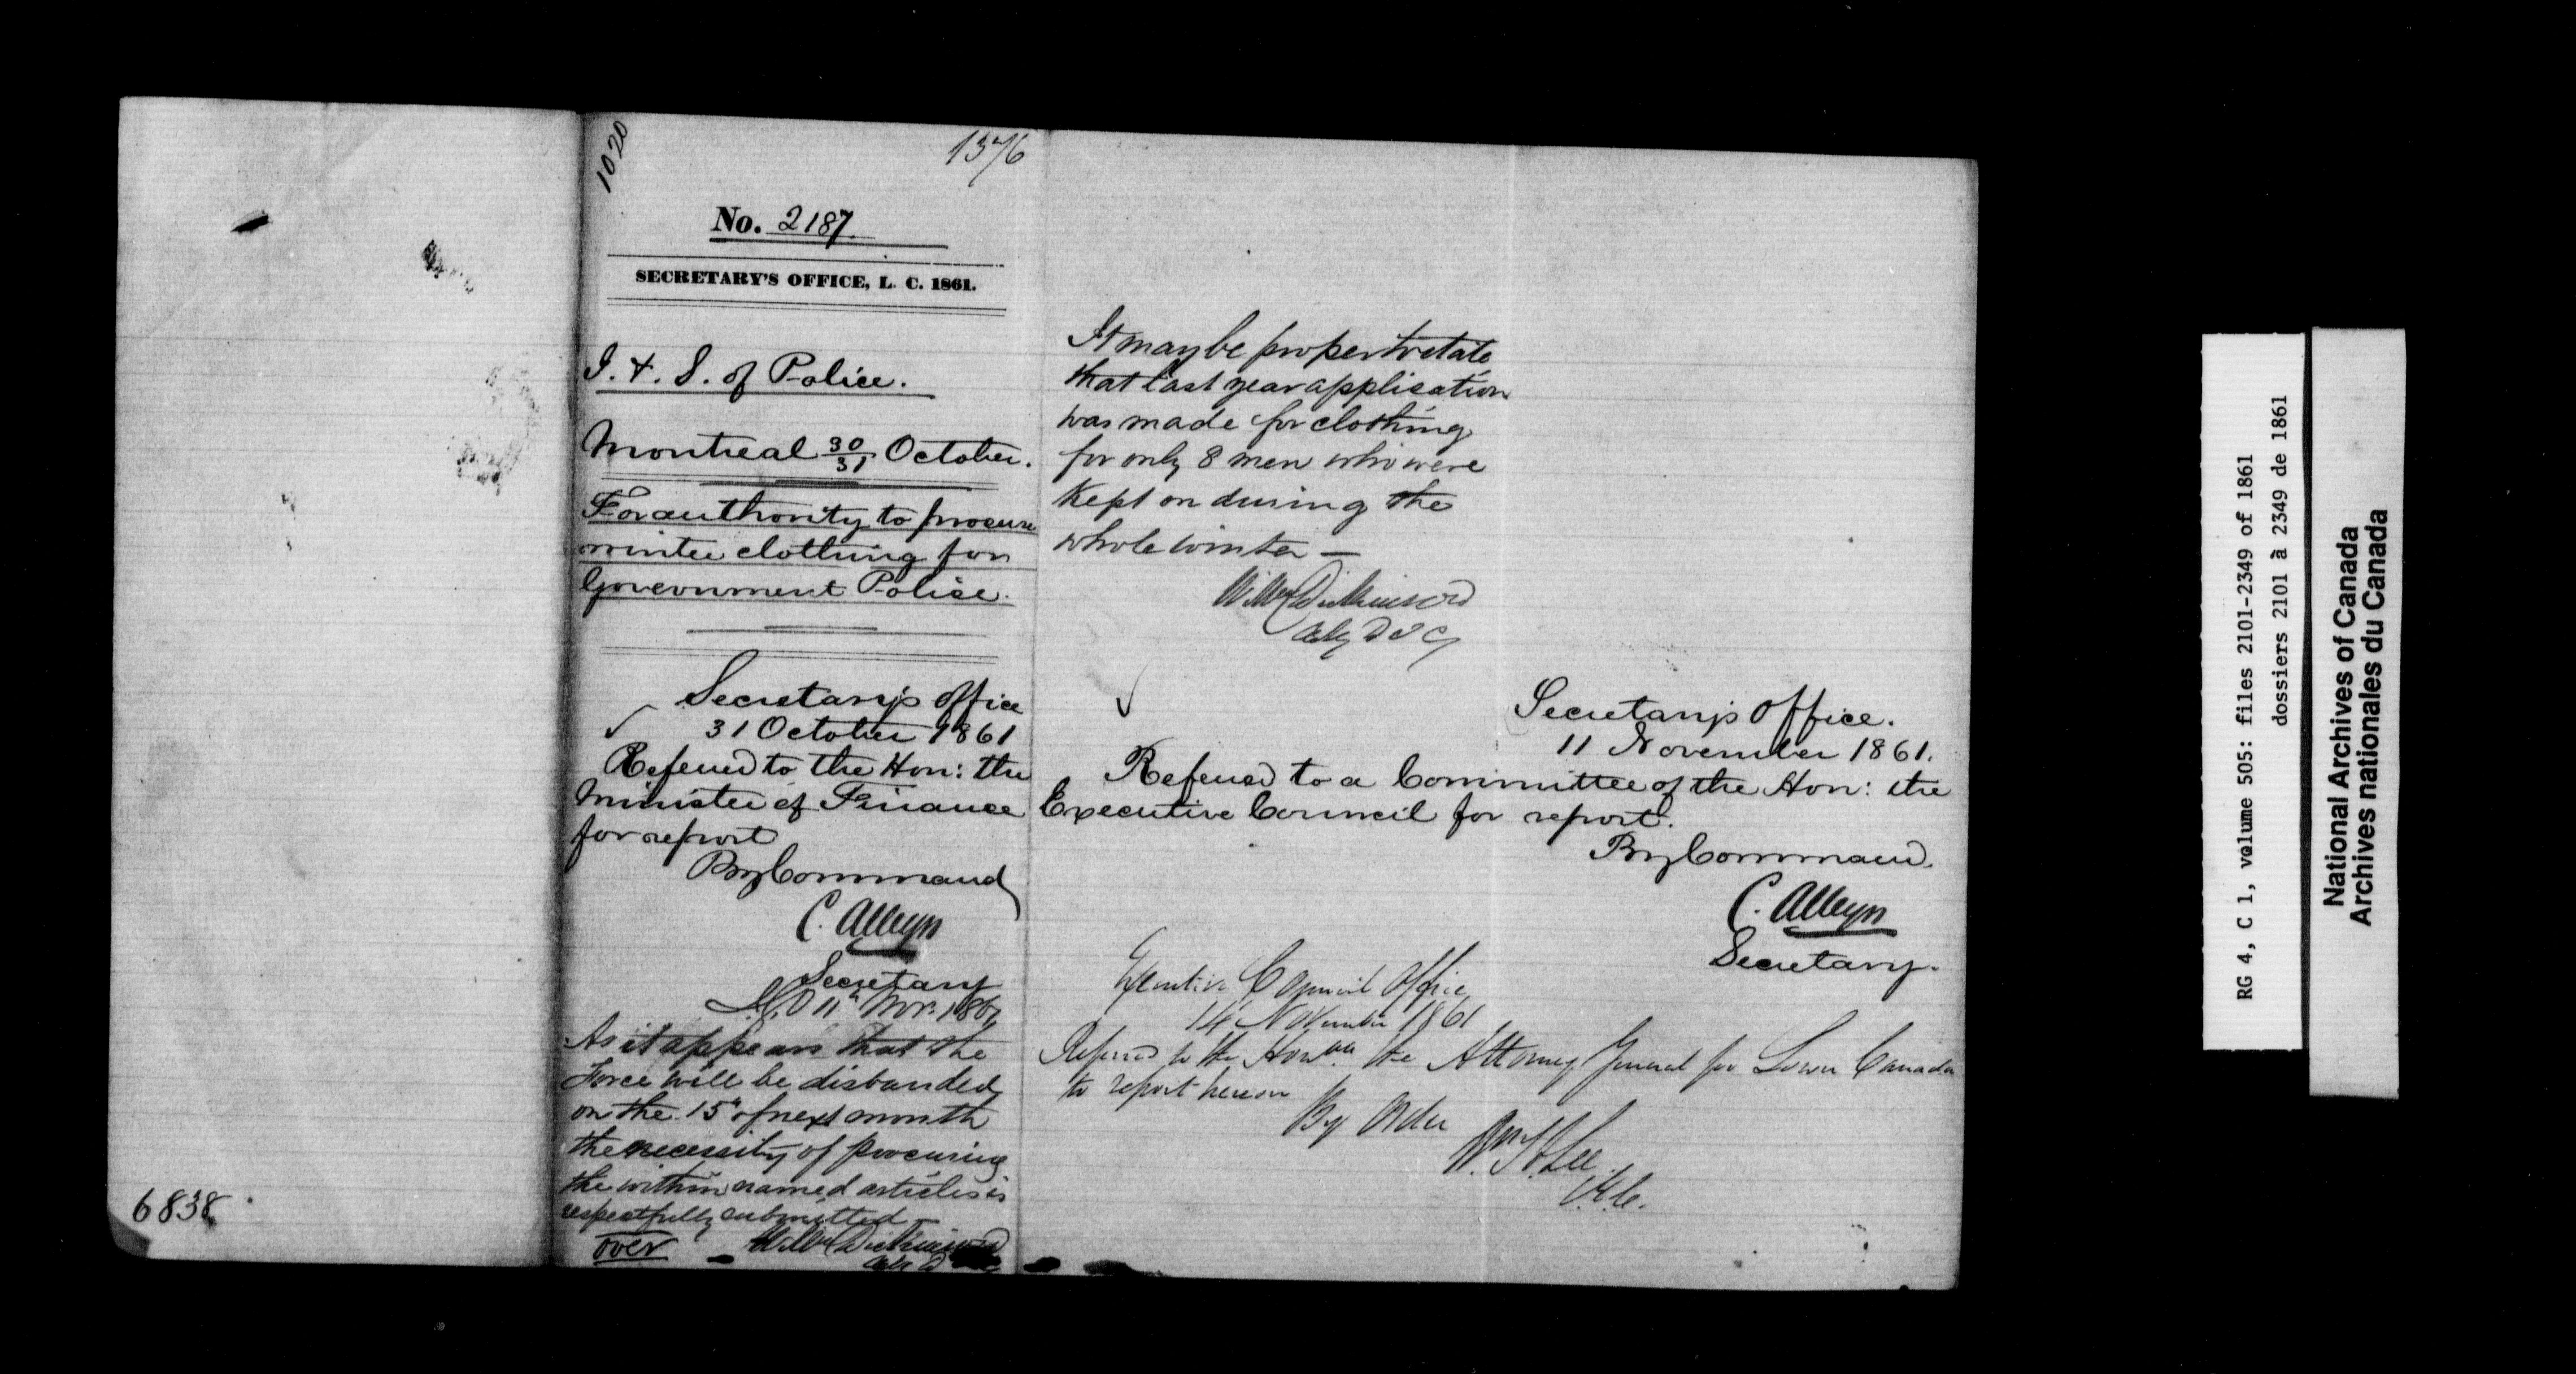 1020
1376
No. 2187.
SECRETARY'S OFFICE, L. C. 1861.
I. & S. of Police.
Montreal 30/31 October.
For authority to procure
winter clothing for
Government Police.
Secretary's Office
31 October 1861
Referred to the Hon: the
Minister of Finance
for report
By Command
C. Alleyn
Secretary
11th Nov. 1861
As it appears that the
Force will be disbanded
on the 15th of next month
the necessity of procuring
the within named articles is
respectfully submitted
over
Wm Dickinson
6838
It may be proper to state
that last year application
was made for clothing
for only 8 men who were
kept on during the
whole winter —
Wm Dickinson
Actg D I G
Secretary's Office.
11 November 1861.
Referred to a Committee of the Hon: the
Executive Council for report.
By Command.
C. Alleyn
Secretary.
Executive Council Office
14 November 1861
Referred to the Honble. the Attorney General for Lower Canada
to report hereon
By Order
Wm H Lee
RG 4, C 1, volume 505: files 2101-2349 of 1861
dossiers 2101 à 2349 de 1861
National Archives of Canada
Archives nationales du Canada